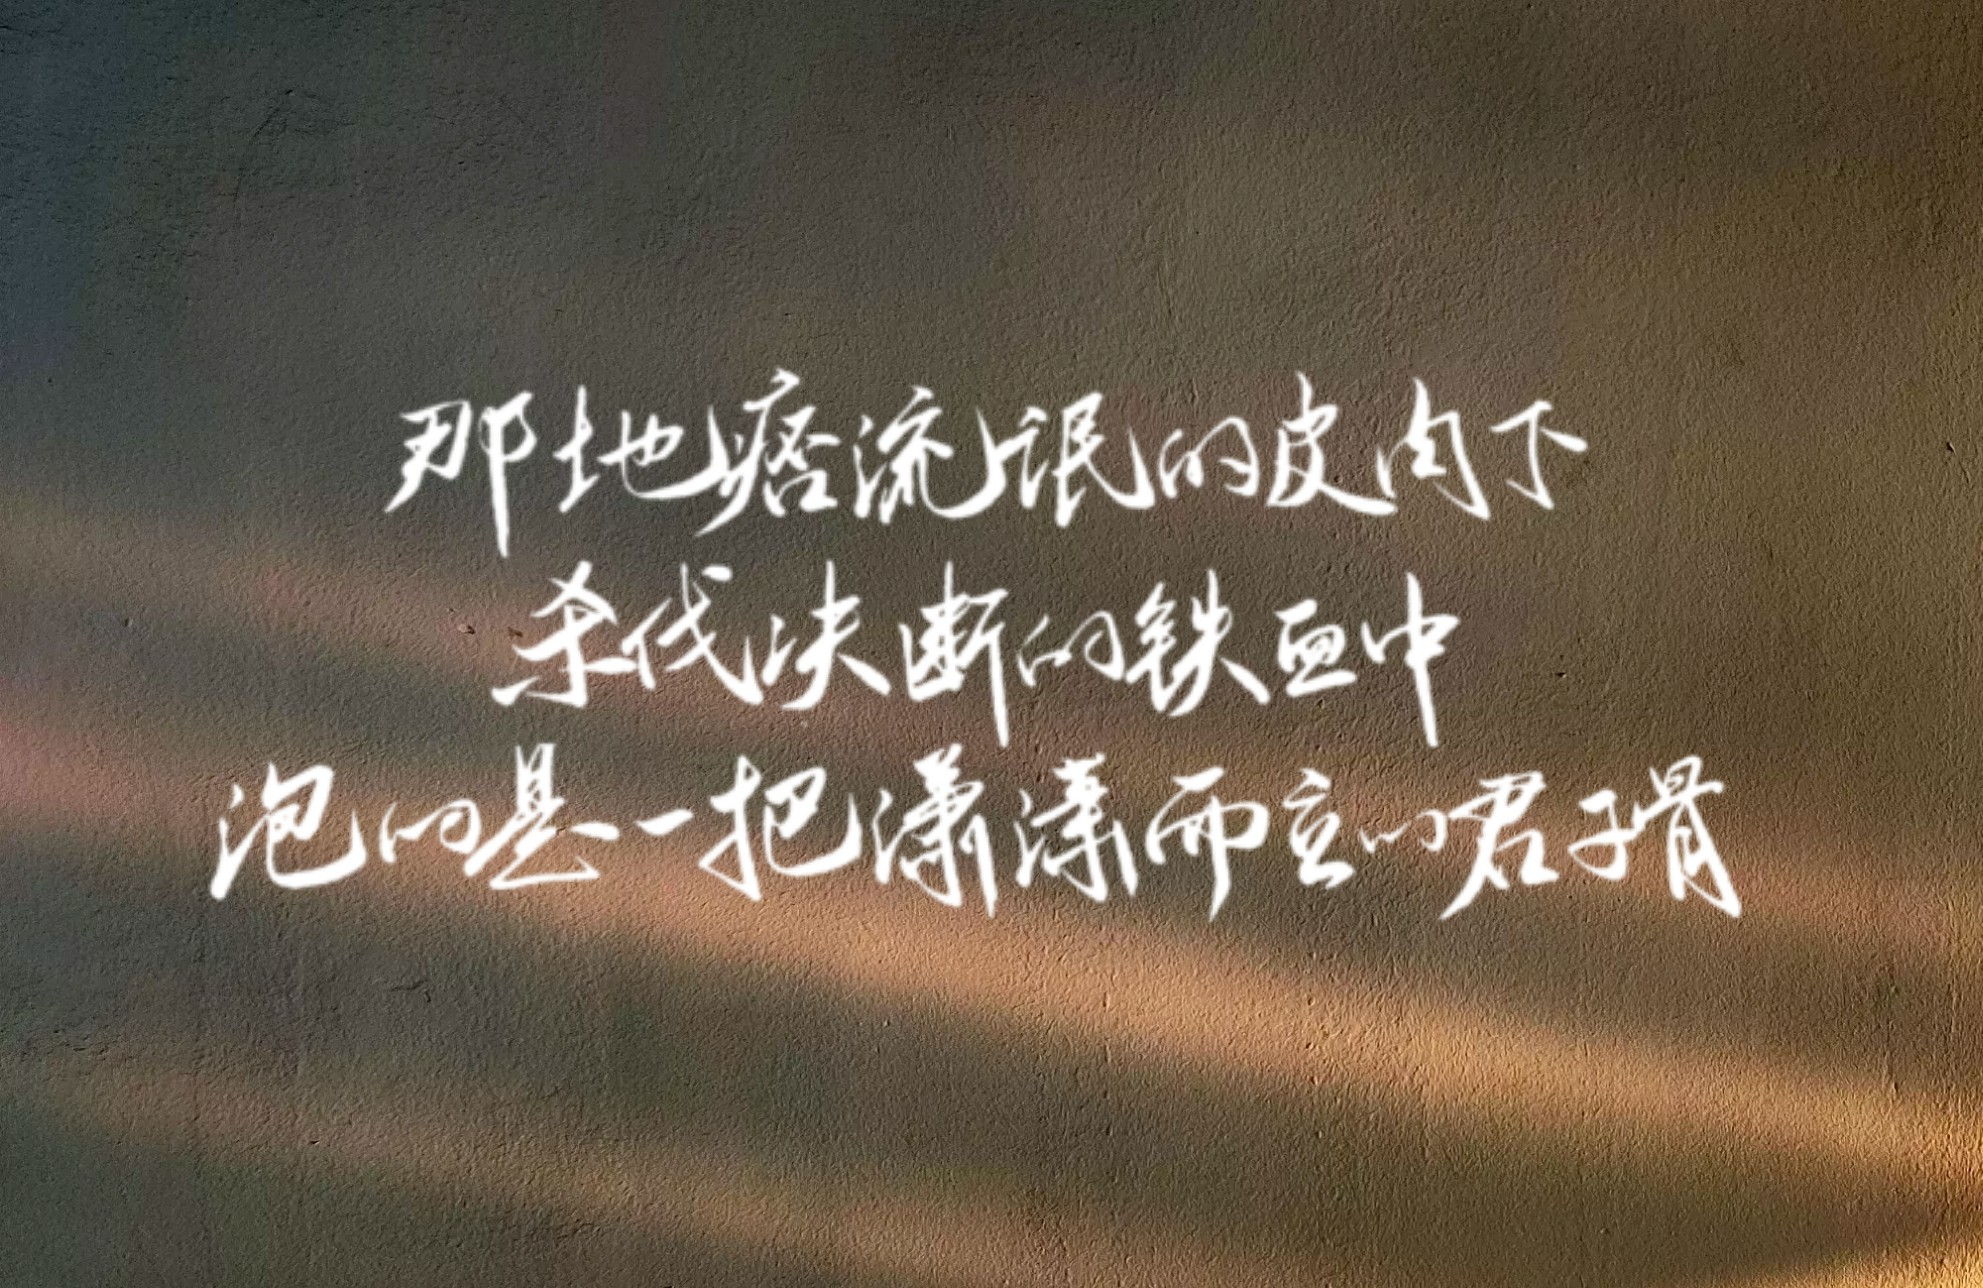 那地痞流氓的皮肉下
杀伐决断的铁血中
泡的是一把潇潇而立的君子骨